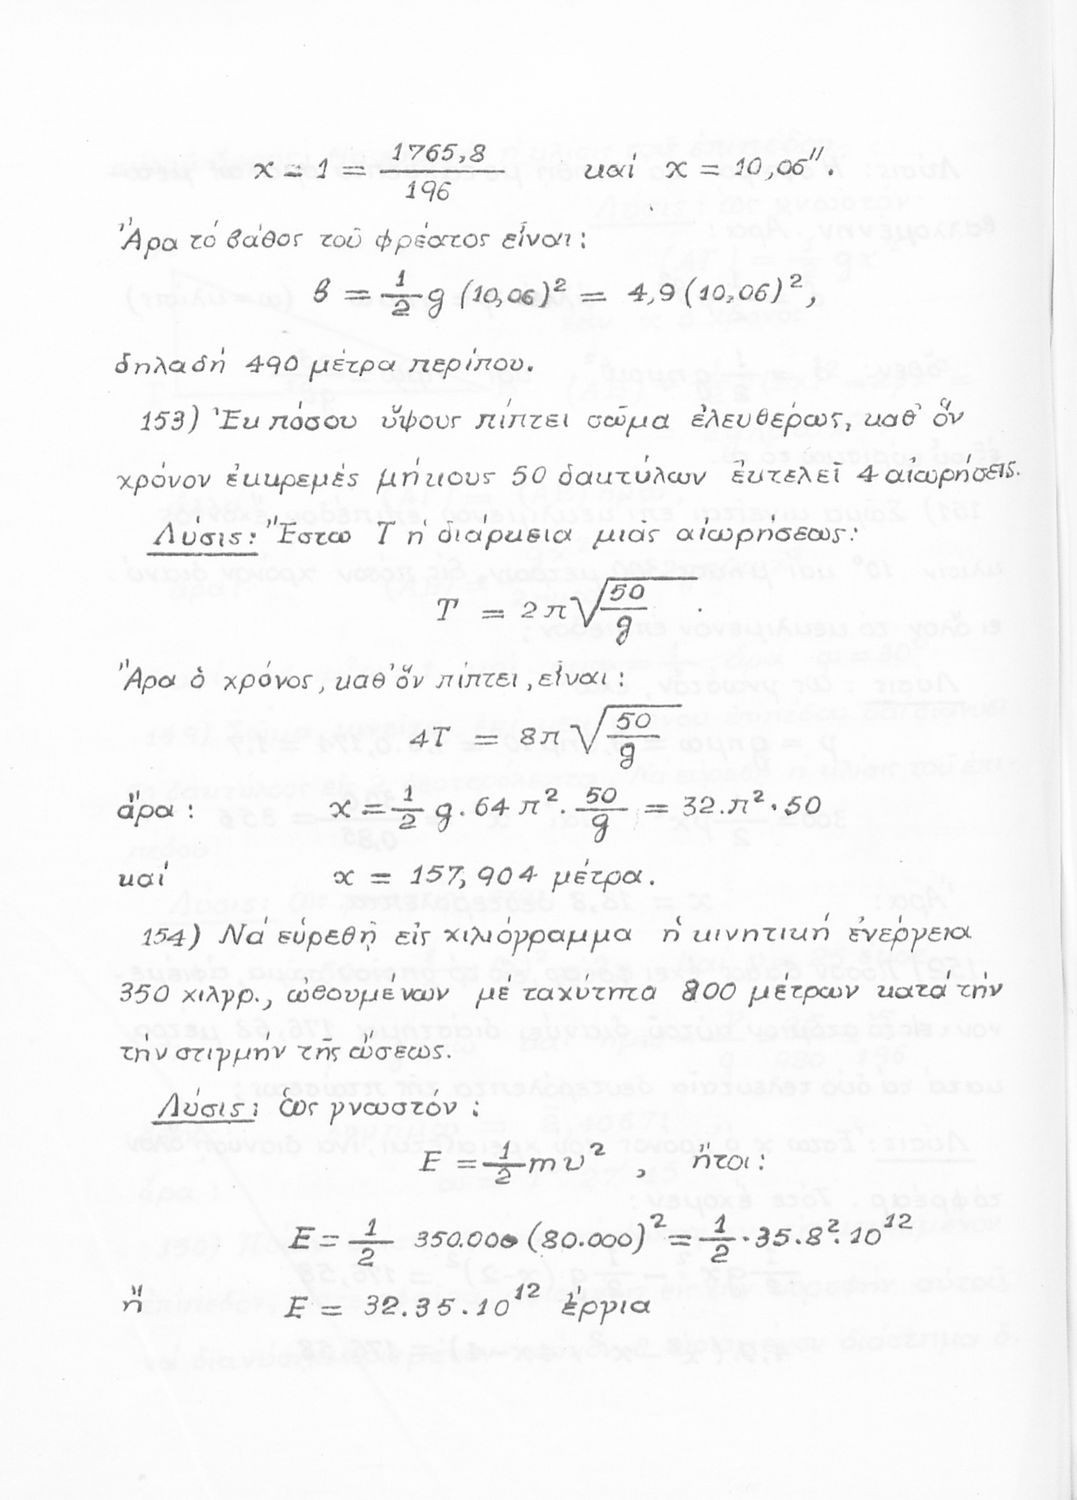 x = 1 = 1765,8/196 καί x = 10,06".
Ἄρα τό βάθος τοῦ φρέατος εἶναι:
β = 1/2 g (10,06)² = 4,9 (10,06)²,
δηλαδή 490 μέτρα περίπου.
153) Ἐκ πόσου ὕψους πίπτει σῶμα ἐλευθέρως, καθ' ὅν
χρόνον ἐκκρεμές μήκους 50 δακτύλων ἐκτελεῖ 4 αἰωρήσεις.
Λύσις: Ἔστω T ἡ διάρκεια μιᾶς αἰωρήσεως:
T = 2π√50/g .
Ἄρα ὁ χρόνος, καθ' ὅν πίπτει, εἶναι:
4T = 8π √50/g
ἄρα: x = 1/2 g. 64 π². 50/g = 32.π².50
καί x = 157,904 μέτρα.
154) Νά εὑρεθῇ εἰς χιλιόγραμμα ἡ κινητική ἐνέργεια
350 χιλγρ., ὠθουμένων μέ ταχύτητα 800 μέτρων κατά τήν
τήν στιγμήν τῆς ὤσεως.
Λύσις: ὡς γνωστόν:
E = 1/2 mυ² , ἤτοι:
E = 1/2 350.000 (80.000)² = 1/2 . 35.8².10¹²
ἤ E = 32.35.10¹² ἔργια